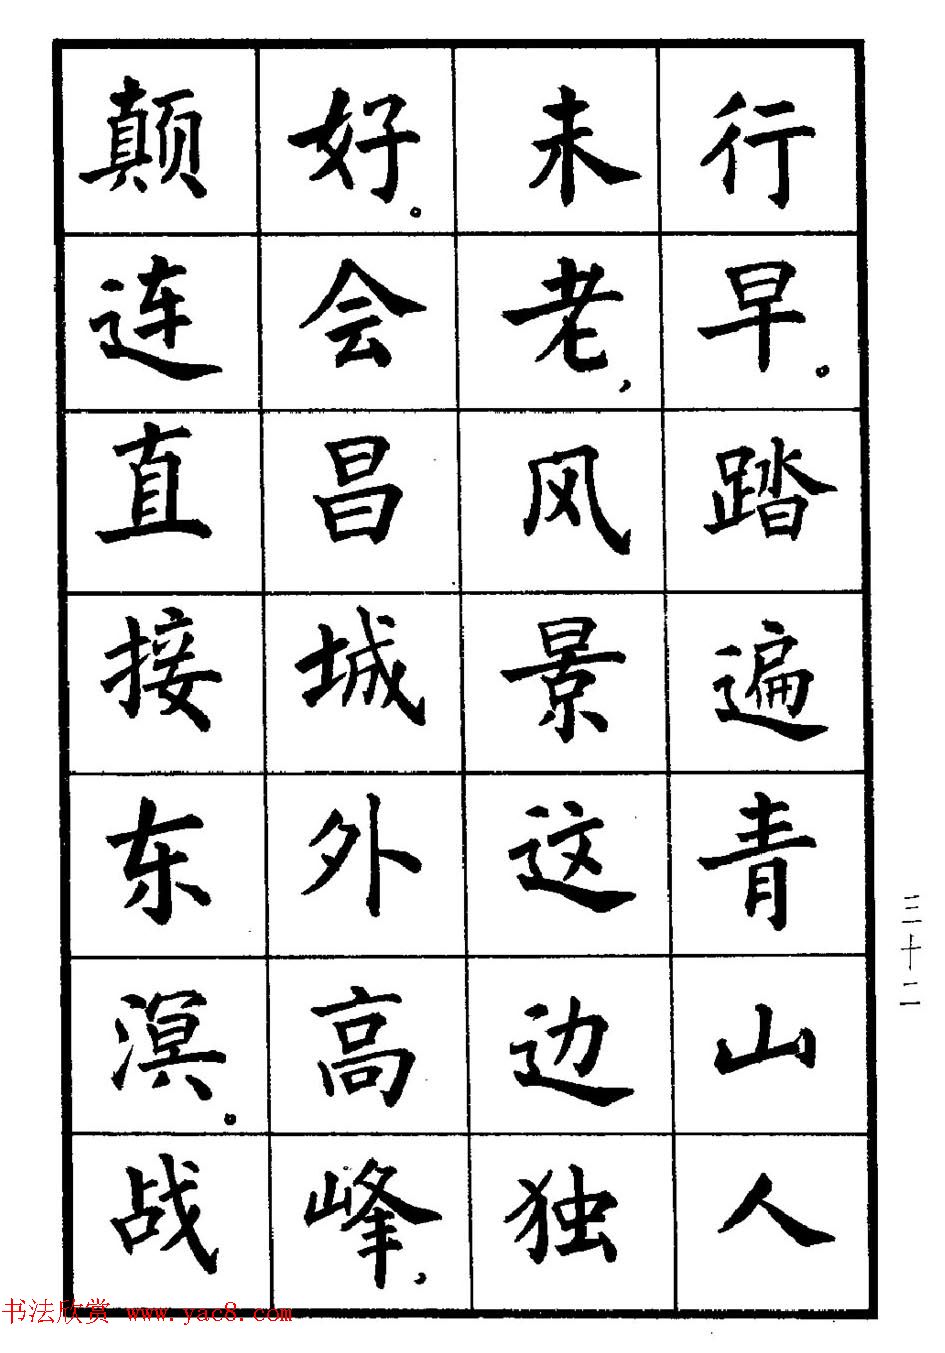 行早。踏遍青山人
未老，风景这边独
好。会昌城外高峰，
颠连直接东溟。战
三十二
书法欣赏 www.yac8.com